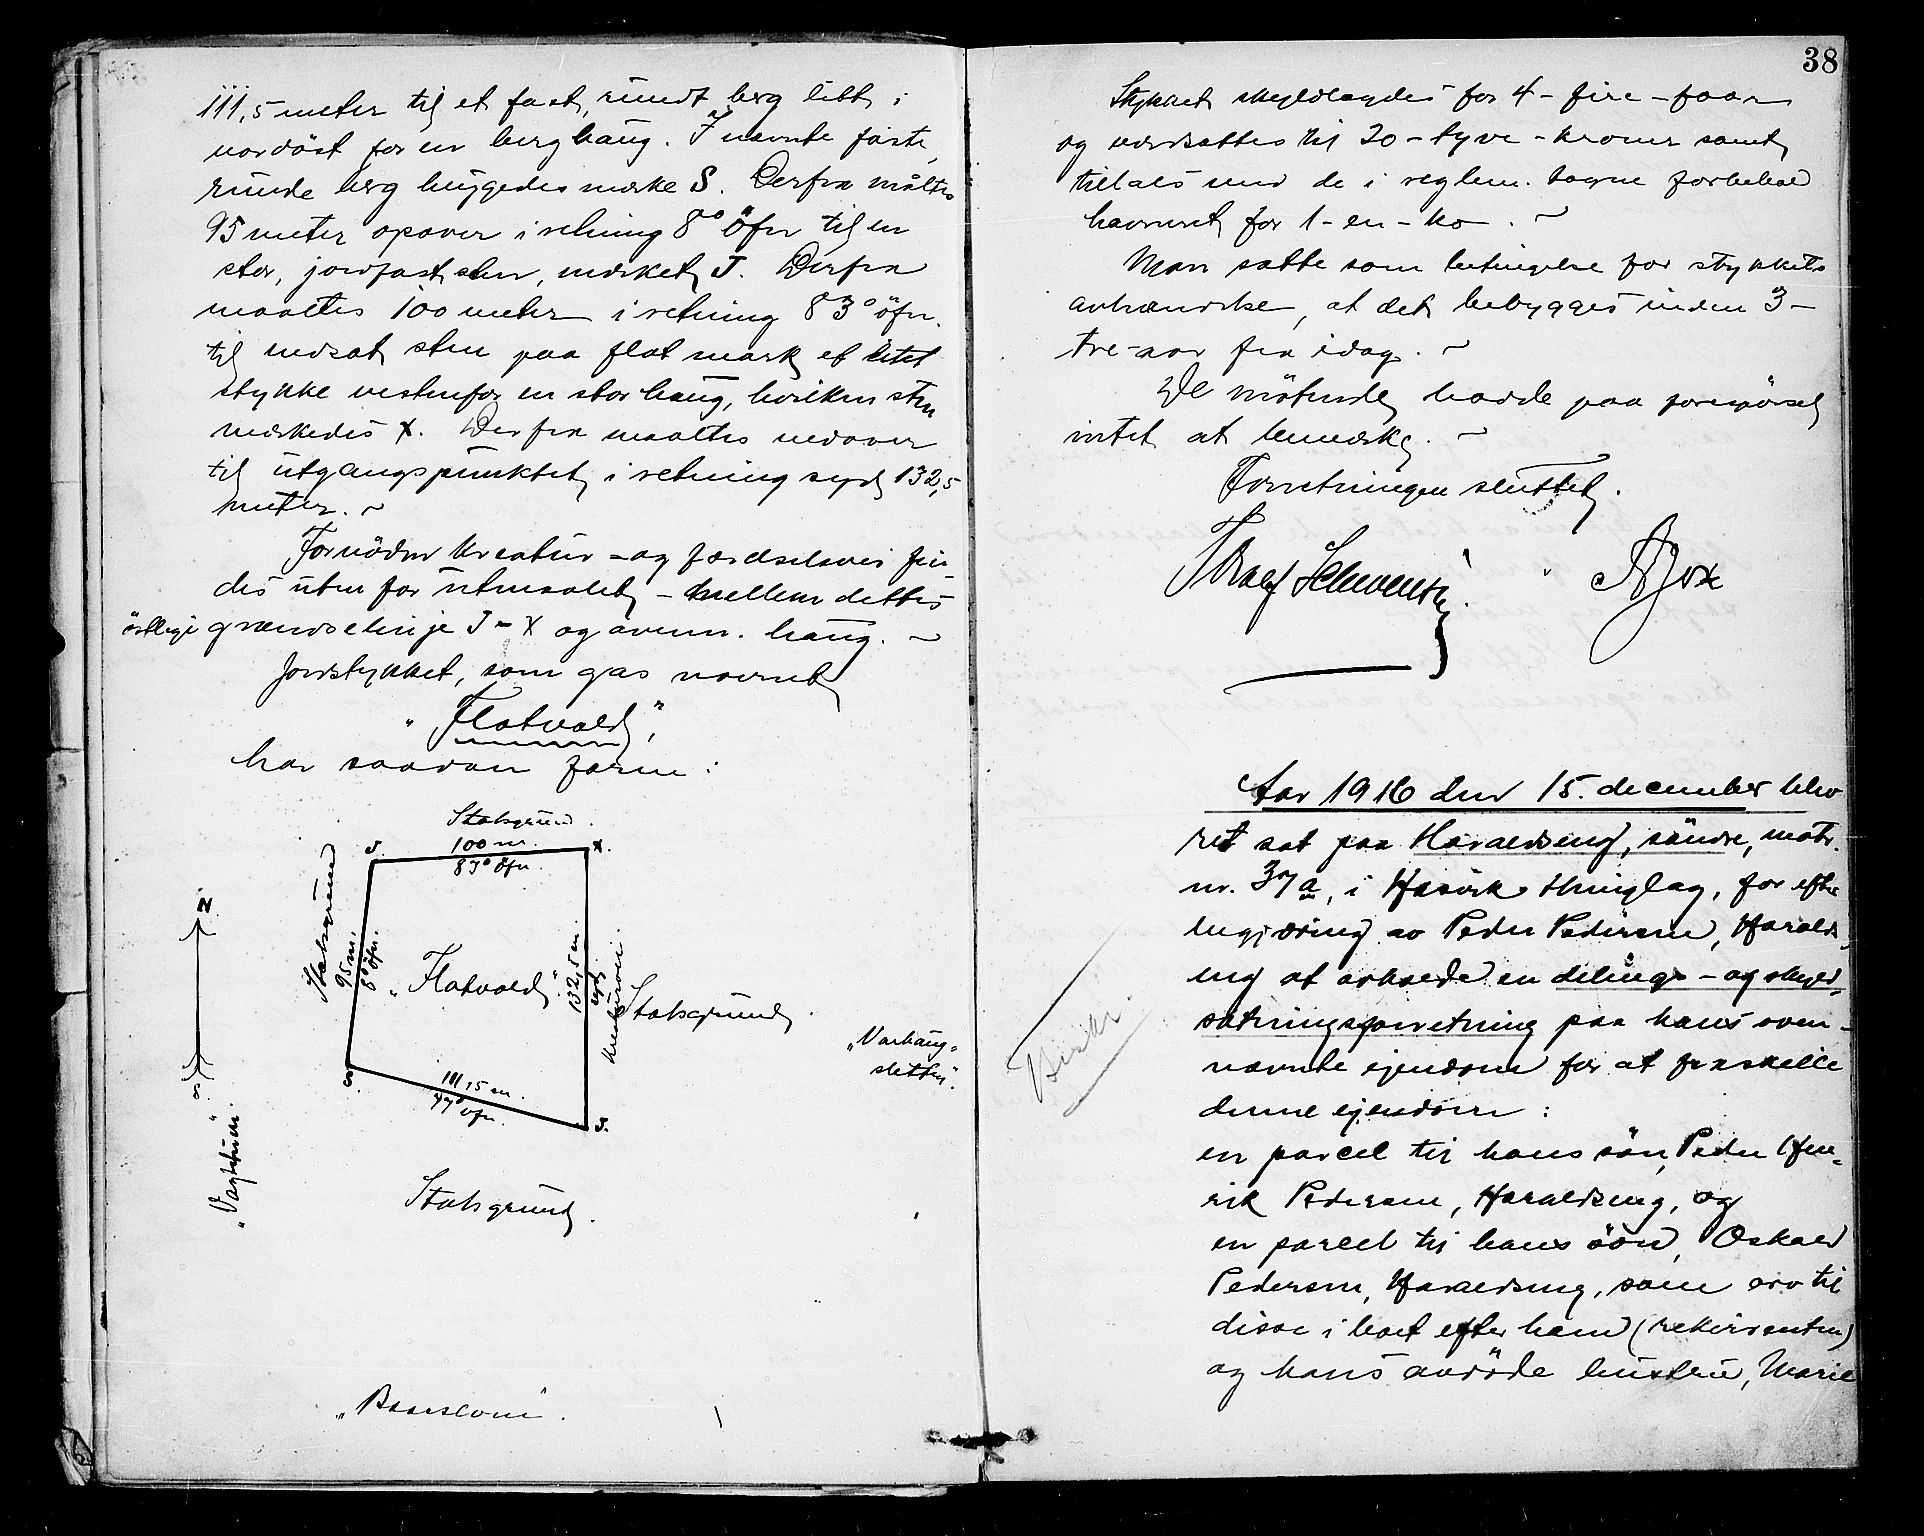 111,5 meter til et fast, rundt berg litt i
nordöst for en berghaug. I nævnte faste,
runde berg huggedes merke S. Derfra måltes
95 meter opover i retning 8° öfn til en
stor, jordfast sten, merket J. Derfra
maaltes 100 meter i retning 83° öfn.
til nedsat sten paa flat mark et litet
stykke vestenfor en stor haug, hvilken sten
merkedes X. Derfra maaltes nedover
til utgangspunktet i retning syd 132,5
meter. ~
Fornöden kreatur- og færdselsvei fin-
des uten for utmaalet - mellem dettes
östlige grændselinje J - X og ovenn. haug. ~
Jordstykket, som gas navnet
"Flatvold",
har saadan form:
Statsgrund.
J. 100 m. X.
83° öfn.
Statsgrund
95 m.
8° öfn.
"Flatvold"
132,5 m
syd
Kreaturvei.
Statsgrund
"Varhaug-
sletten".
N
S
S
111,5 m.
77° vfn.
J.
Statsgrund.
38
Stykket skyldlagdes for 4 - fire - öre
og værdsattes til 20 - tyve - kroner samt
tillaes med de i reglem. tagne forbehold
havneret for 1 - en - ko. ~
Man satte som betingelse for stykkets
avhændelse, at det bebygges inden 3 -
tre - aar fra idag. ~
De mötende hadde paa forespörsel
intet at bemerke. ~
Forretningen sluttet.
Aar 1916 den 15. december blev
ret sat paa Haraldseng, söndre, matr.
nr. 37a, i Hasvik thinglag, for efter
begjæring av Peder Pedersen, Haralds-
eng at avholde en delings- og skyld-
sætningsforretning paa hans oven-
nævnte ejendom for at fraskille
denne ejendom:
en parcel til hans sön, Peder Hen-
rik Pedersen, Haraldseng, og
en parcel til hans sön, Oskar
Pedersen, Haraldseng, som arv til
disse i boet efter ham (rekvirenten)
og hans avdöde hustru, Marie